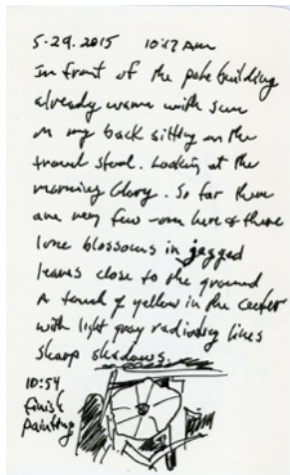 5-29.2015 10:17 Am
In front of the pole building
already warm with sun
on my back sitting on the
travel stool. Looking at the
morning Glory. So far there
are very few - one here & there
lone blossoms in jagged
leaves close to the ground
A touch of yellow in the center
with light gray radiating lines
sharp shadows.
10:54
finish
painting